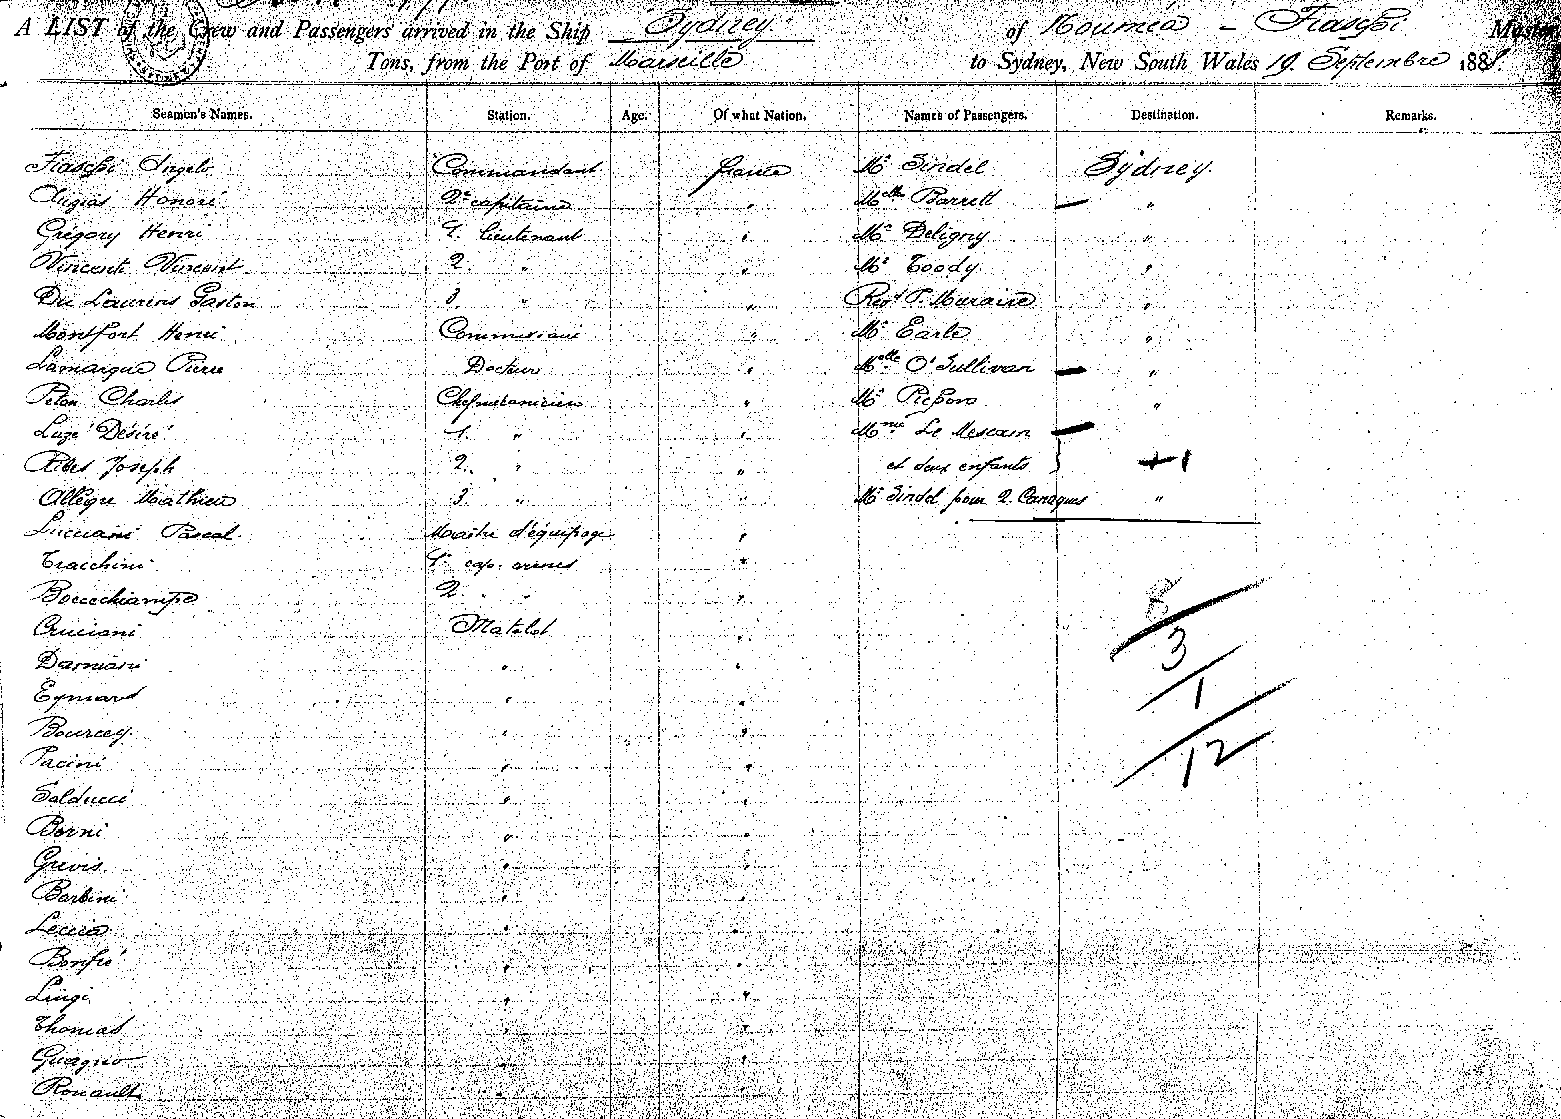 A LIST of the Crew and Passengers arrived in the Ship Sydney of Nouméa - Fiaschi Master
Tons, from the Port of Marseille to Sydney, New South Wales 19 Septembre 188
Seamen's Names. Station. Age. Of what Nation. Names of Passengers. Destination. Remarks.
Fiaschi Angelo Commandant france Mr Sindel Sydney.
Augias Honoré 2e capitaine " Melle Barrett — "
Grégory Henri 1. lieutenant " Mr Deligny "
Vincenti Vincent 2 " " Mr Toody "
Du Laurens Gaston 3 " " Revd P. Muraire "
Montfort Henri Commissaire " Mr Earle "
Lamarque Pierre Docteur " Melle O'Sullivan — "
Peton Charles Chef mécanicien " Mr "
Luzé Désiré 1. " " Mme Le Mescam —
Ribes Joseph 2. " " et deux enfants } +1
Allègre Mathieu 3. " " Mr Sindel pour 2 Canaques "
Lucciani Pascal Maître d'équipage "
Tracchini 1er cap. armes "
Bocecchiampe 2 " "
Cruciani Matelot "
Damiani " "
Eymard " "
Bourcey " "
Pacini " "
Solducci " "
Berni " "
Grevis " "
Barbini " "
Leccia " "
Bonfié " "
Luigi " "
Thomas " "
Guagno " "
Ronault " "
8
3
1
12